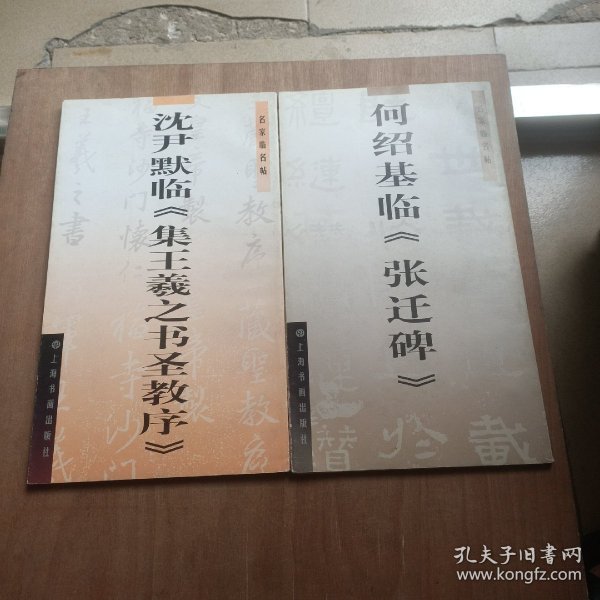 名家临名帖
沈尹默临《集王羲之书圣教序》
上海书画出版社
名家临名帖
何绍基临《张迁碑》
上海书画出版社
孔夫子旧书网
www.kongfz.com